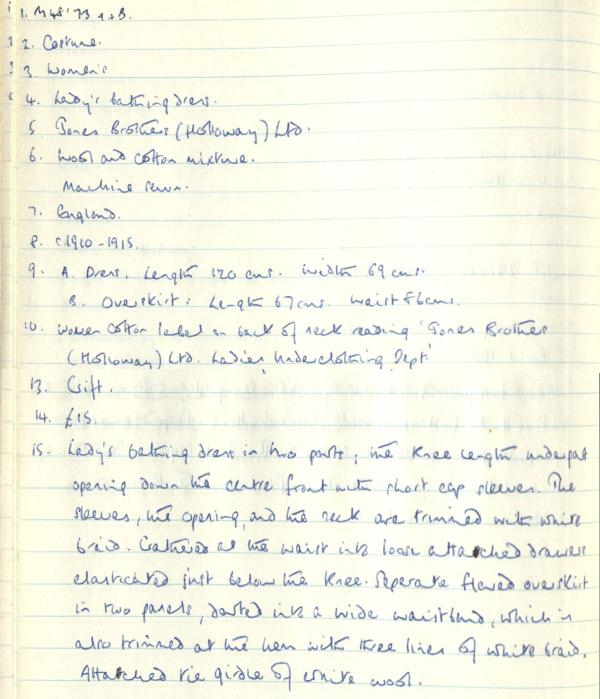 1. M48'73 A+B.
2. Costume.
3. Women's
4. Lady's bathing dress.
5. Jones Brothers (Holloway) Ltd.
6. Wool and cotton mixture.
Machine sewn.
7. England.
8. c1910-1915.
9. A. Dress. Length 120 cms. Width 69 cms.
B. Overskirt: Length 67 cms. Waist 86 cms.
10. Woven cotton label on back of neck reading 'Jones Brothers
(Holloway) Ltd. Ladies Underclothing Dept'
13. Gift.
14. £15.
15. Lady's bathing dress in two parts; the knee length underpart
opening down the centre front with short cap sleeves. The
sleeves, the opening, and the neck are trimmed with white
braid. Gathered at the waist into loose attached drawers
elasticated just below the knee. Separate flared overskirt
in two panels, darted into a wide waistband, which is
also trimmed at the hem with three lines of white braid.
Attached tie girdle of white wool.